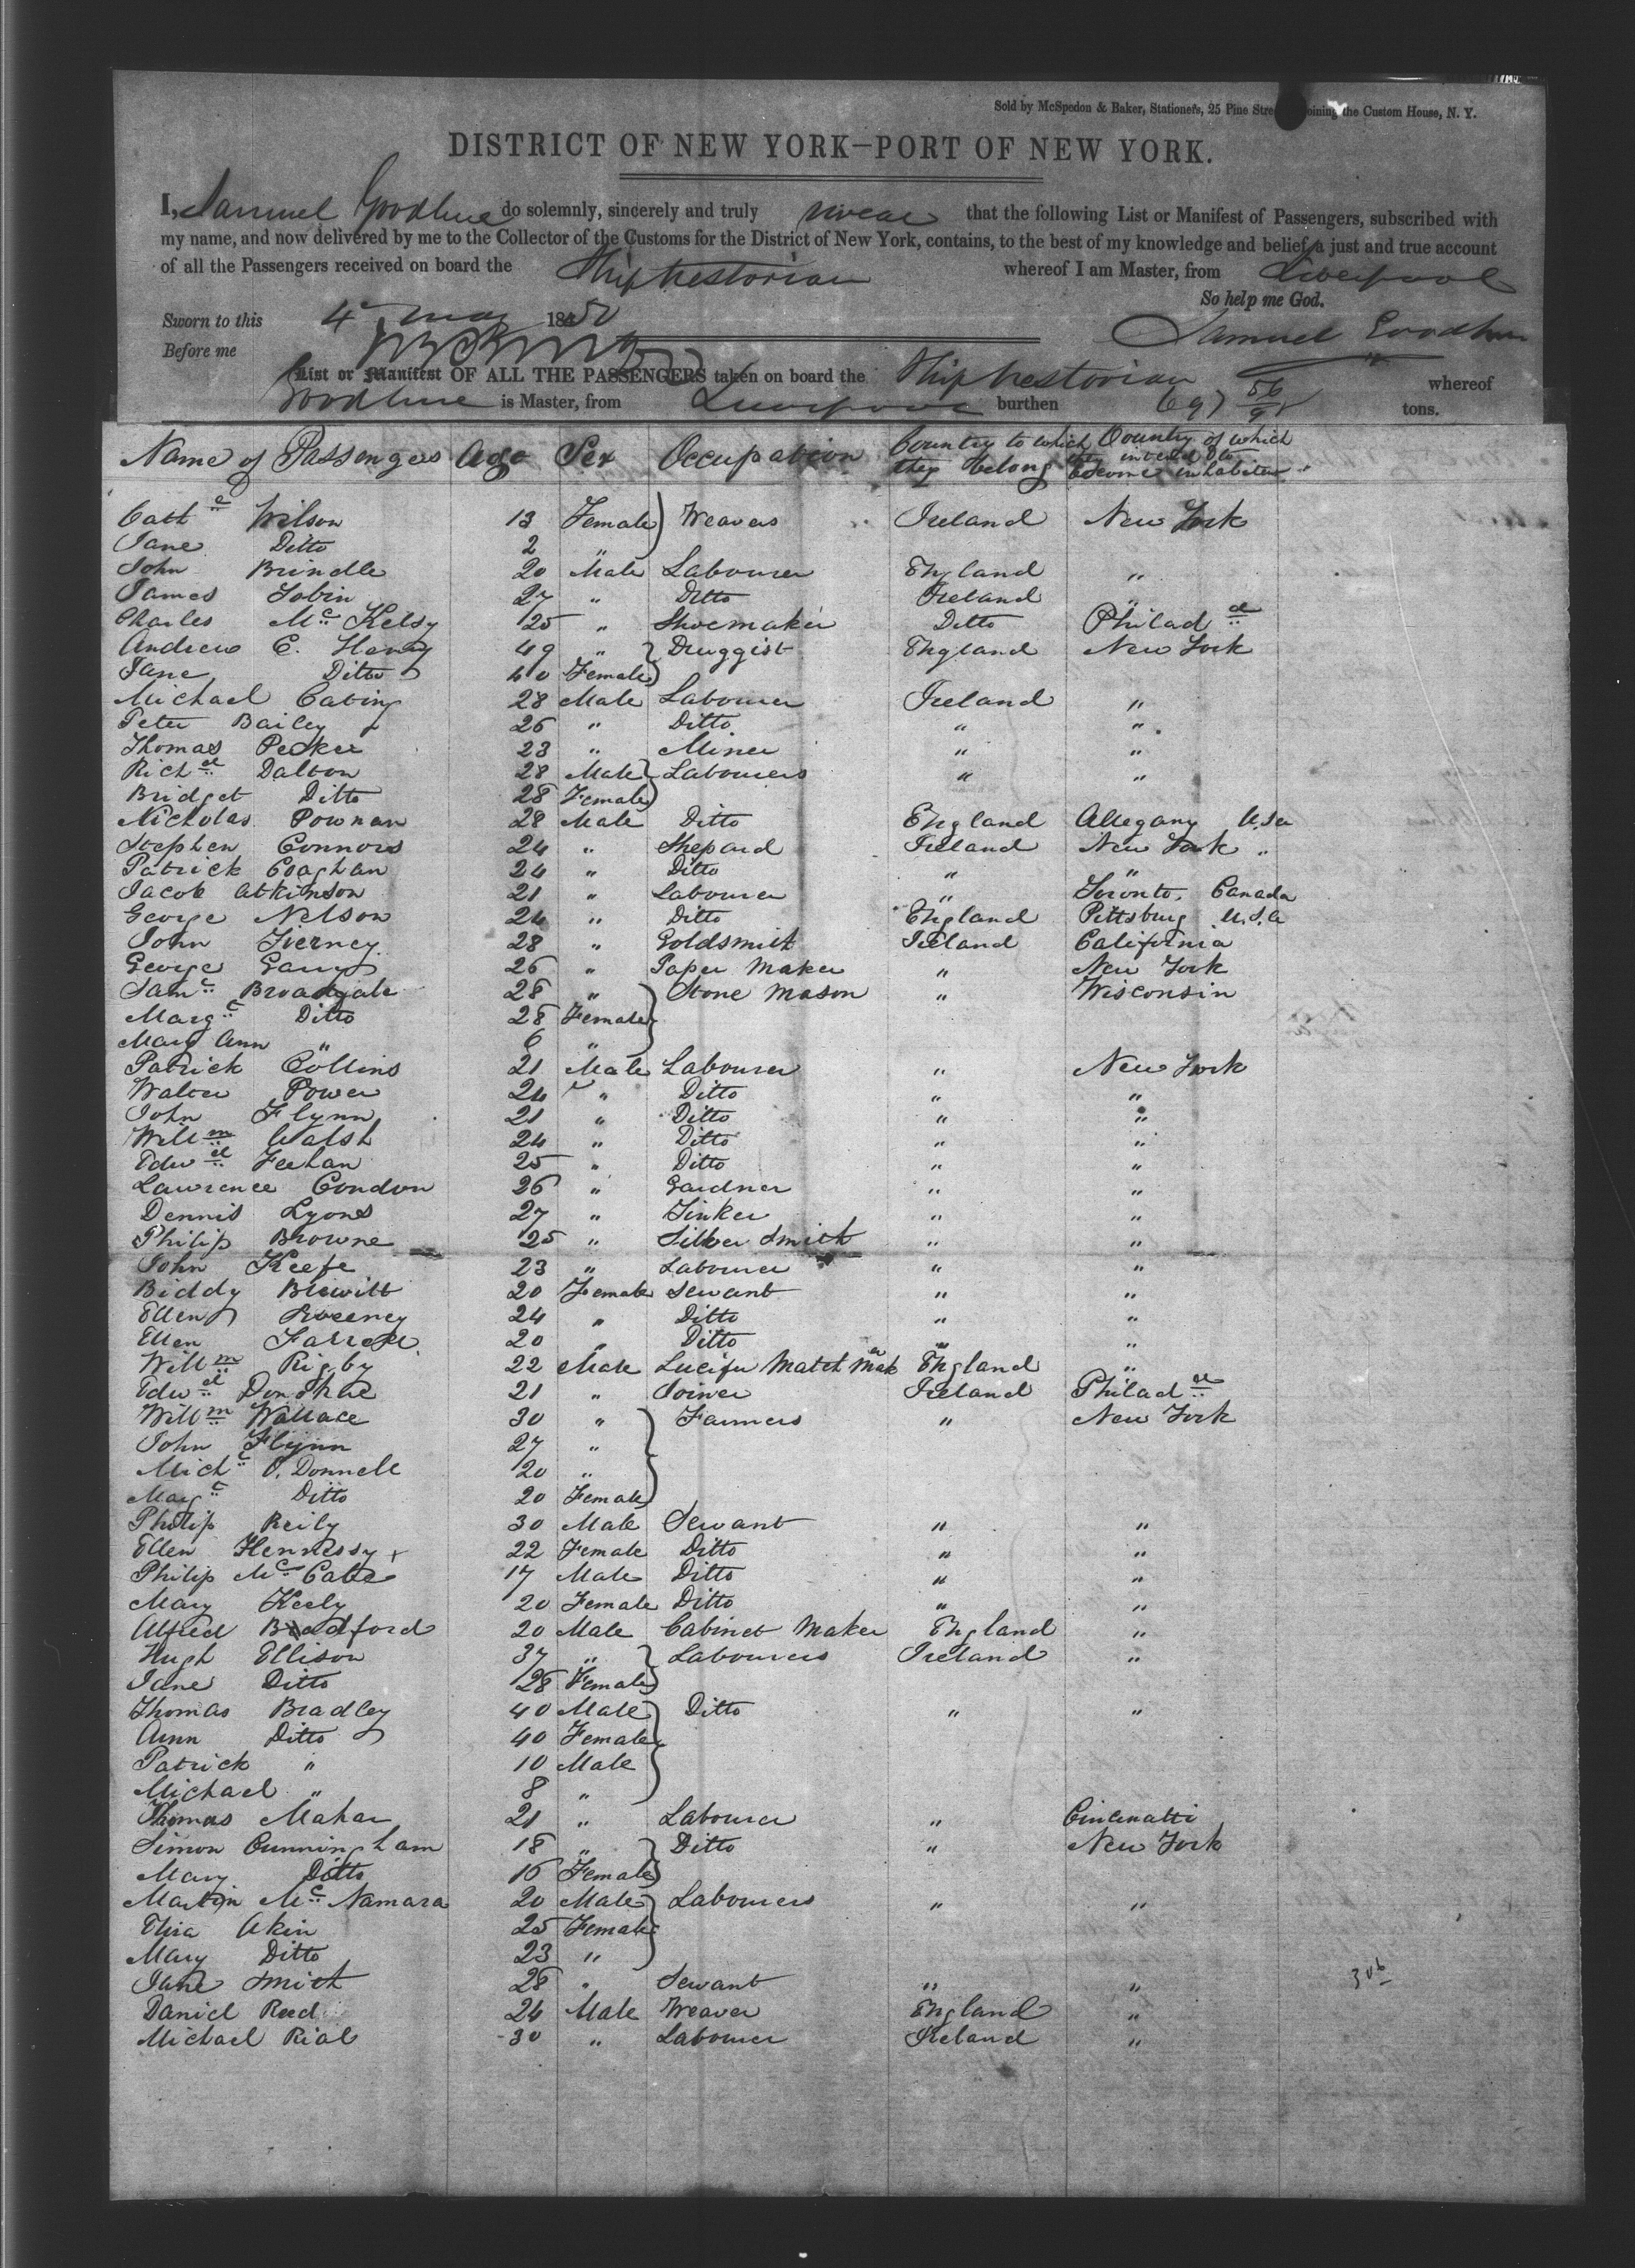 Sold by McSpedon & Baker, Stationers, 25 Pine Stre oining the Custom House, N. Y.
DISTRICT OF NEW YORK—PORT OF NEW YORK.
I, Samuel Goodhue do solemnly, sincerely and truly swear that the following List or Manifest of Passengers, subscribed with
my name, and now delivered by me to the Collector of the Customs for the District of New York, contains, to the best of my knowledge and belief, a just and true account
of all the Passengers received on board the Ship Nestorian whereof I am Master, from Liverpool
So help me God.
Sworn to this 4 May 1850
Samuel Goodhue
Before me
List or Manifest OF ALL THE PASSENGERS taken on board the Ship Nestorian whereof
Goodhue is Master, from Liverpool burthen 697 tons.
Name of Passengers Age Sex Occupation Country to which they belong Country of which they intend to become inhabitants
Cathe Wilson 13 Female Weavers Ireland New York
Jane Ditto 2 "
John Brindle 20 Male Labourer England "
James Tobin 27 " Ditto Ireland "
Charles Mc Kelsy 25 " Shoemaker Ditto Philad a
Andrew E. Henry 49 " Druggist England New York
Jane Ditto 40 Female
Michael Cating 28 Male Labourer Ireland "
Peter Bailey 26 " Ditto " "
Thomas Pecker 23 " Miner " "
Richd Dalton 28 Male Labourers " "
Bridget Ditto 28 Female
Nicholas Pownan 28 Male Ditto England Allegany U.Sa
Stephen Connors 24 " Shepard Ireland New York "
Patrick Coaghan 24 " Ditto " "
Jacob Atkinson 21 " Labourer " Toronto, Canada
George Nelson 24 " Ditto England Pittsburg U.S.a
John Tierney 28 " Goldsmith Ireland California
George Garry 26 " Paper Maker " New York
Saml Broadgate 28 " Stone Mason " Wisconsin
Margt Ditto 28 Female
Mary Ann " 6 "
Patrick Collins 21 Male Labourer " New York
Walter Power 24 " Ditto " "
John Flynn 21 " Ditto " "
Willm Walsh 24 " Ditto " "
Edwd Feehan 25 " Ditto " "
Lawrence Condon 26 " Gardner " "
Dennis Lyons 27 " Tinker " "
Philip Browne 25 " Silver Smith " "
John Keefe 23 " Labourer " "
Biddy Blewitt 20 Female Servant " "
Ellen Sweeney 24 " Ditto " "
Ellen Farrell 20 " Ditto " "
Willm Rigby 22 Male Lucifer Match Maker England "
Edwd Donohue 21 " Joiner Ireland Philad a
Willm Wallace 30 " Farmers " New York
John Flynn 27 "
Michl O'Donnell 20 "
Margt Ditto 20 Female
Philip Reily 30 Male Servant " "
Ellen Hennessy + 22 Female Ditto " "
Philip Mc Cabe 17 Male Ditto " "
Mary Keely 20 Female Ditto " "
Alfred Bradford 20 Male Cabinet Maker England "
Hugh Ellison 37 " Labourers Ireland "
Jane Ditto 28 Female
Thomas Bradley 40 Male Ditto " "
Ann Ditto 40 Female
Patrick " 10 Male
Michael " 8 "
Thomas Mahar 21 " Labourer " Cincinatti
Simon Cunningham 18 " Ditto " New York
Mary Ditto 16 Female
Martin Mc Namara 20 Male Labourers " "
Eliza Akin 25 Female
Mary Ditto 23 "
Jane Smith 28 " Servant " "
306
Daniel Reed 24 Male Weaver England "
Michael Rial 30 " Labourer Ireland "